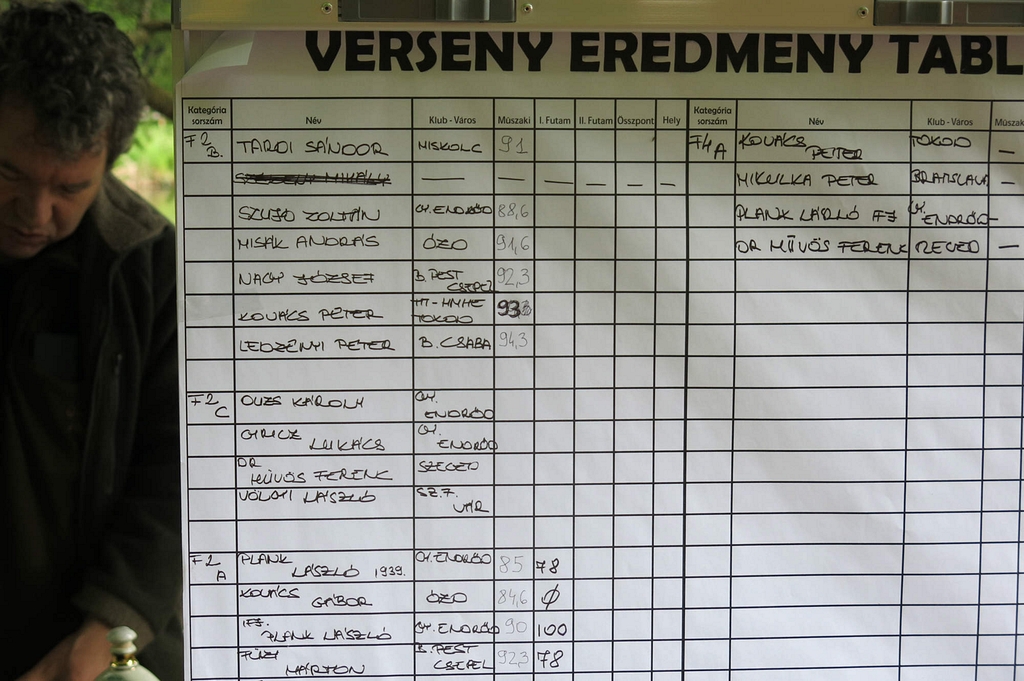 VERSENY EREDMÉNY TABL
Kategória sorszám Név Klub - Város Műszaki I. Futam II. Futam Összpont Hely Kategória sorszám Név Klub - Város Műszak
F2 B. TARDI SÁNDOR MISKOLC 91 F4 A KOVÁCS PÉTER TOKOD —
— — — — — — — MIKULKA PETER BRATISLAVA —
ZOLTÁN GY. ENDRŐD 88,6 PLANK LÁSZLÓ IFJ GY. ENDRŐD —
MISÁK ANDRÁS ÓZD 91,6 DR MŰVÖS FERENC SZEGED —
NAGY JÓZSEF B.PEST CSEPEL 92,3
KOVÁCS PÉTER TIT-HMHE TOKOD 93
LEDZÉNYI PÉTER B. CSABA 94,3
F2 C OUZS KÁROLY GY. ENDRŐD
GIRICZ LUKÁCS GY. ENDRŐD
DR MŰVÖS FERENC SZEGED
VÖLGYI LÁSZLÓ SZ.F. VÁR
F2 A PLANK LÁSZLÓ 1939. GY. ENDRŐD 85 78
KOVÁCS GÁBOR ÓZD 84,6 Ø
IFJ. PLANK LÁSZLÓ GY. ENDRŐD 90 100
FÜZI MÁRTON B. PEST CSEPEL 92,3 78